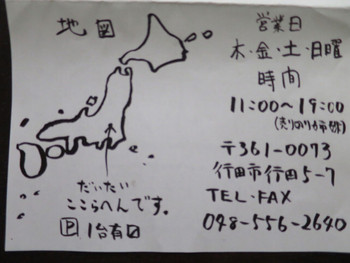 地図
だいたい
ここらへんです。
P 1台有り
営業日
木・金・土・日曜
時間
11:00～19:00
〒361-0073
行田市行田5-7
TEL・FAX
048-556-2640